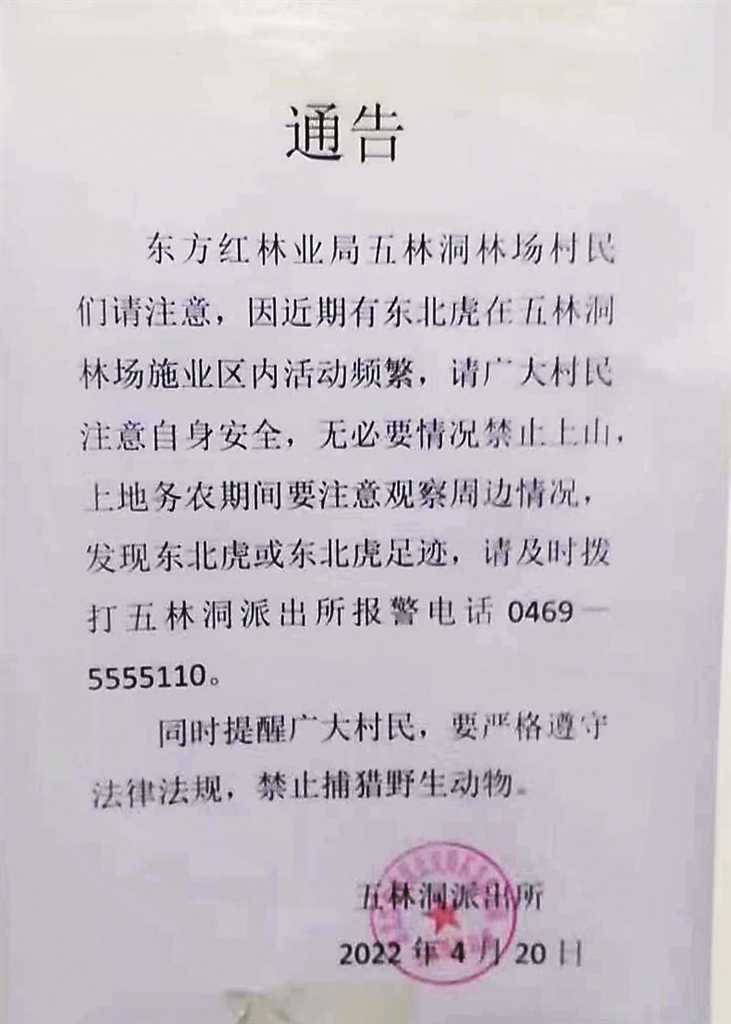 通告
东方红林业局五林洞林场村民
们请注意，因近期有东北虎在五林洞
林场施业区内活动频繁，请广大村民
注意自身安全，无必要情况禁止上山，
上地务农期间要注意观察周边情况，
发现东北虎或东北虎足迹，请及时拨
打五林洞派出所报警电话 0469—
5555110。
同时提醒广大村民，要严格遵守
法律法规，禁止捕猎野生动物。
五林洞派出所
2022 年 4 月 20 日